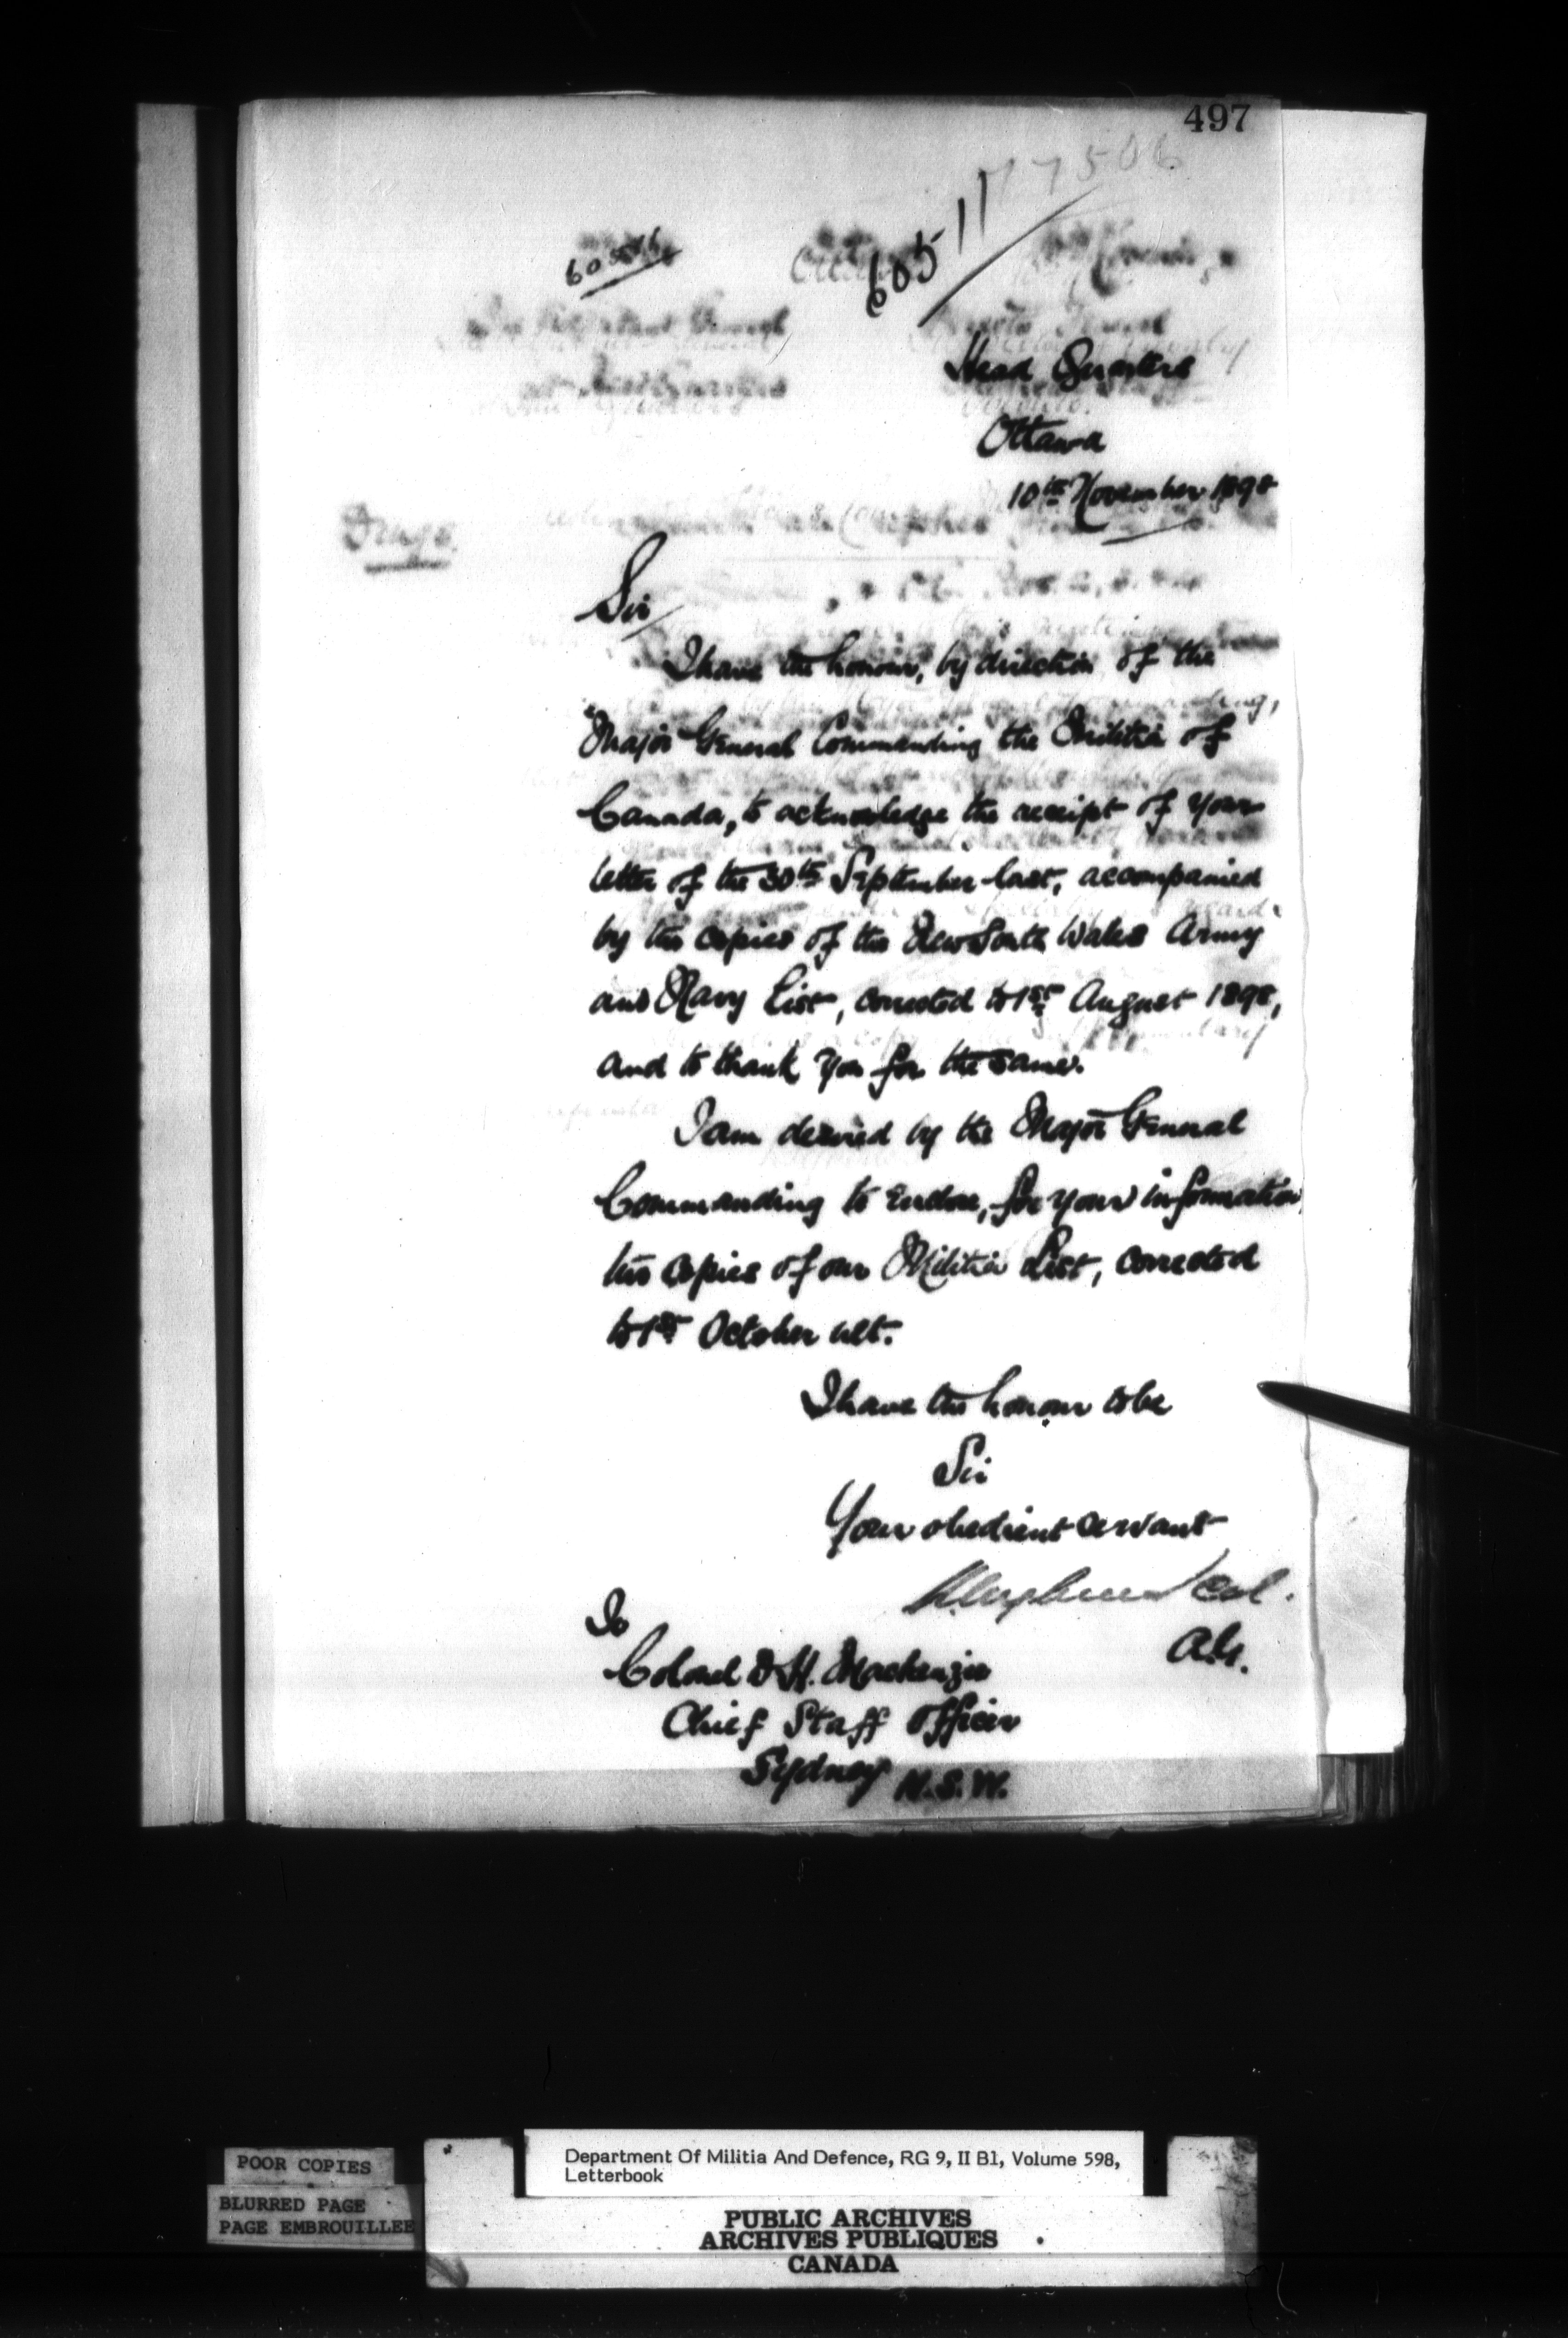 497
77506
60511
60516
Head Quarters
Ottawa
10th November 1898
Sir
I have the honour, by direction of the
Major General Commanding the Militia of
Canada, to acknowledge the receipt of your
letter of the 30th September last, accompanied
by two copies of the New South Wales Army
and Navy List, corrected to 1st August 1898,
and to thank you for the same.
I am desired by the Major General
Commanding to enclose, for your information
two copies of our Militia List, corrected
to 1st October ult.
I have the honour to be
Sir
Your obedient servant
Col.
A.G.
To
Colonel H. Mackenzie
Chief Staff Officer
Sydney N.S.W.
POOR COPIES
BLURRED PAGE
PAGE EMBROUILLEE
Department Of Militia And Defence, RG 9, II B1, Volume 598,
Letterbook
PUBLIC ARCHIVES
ARCHIVES PUBLIQUES
CANADA